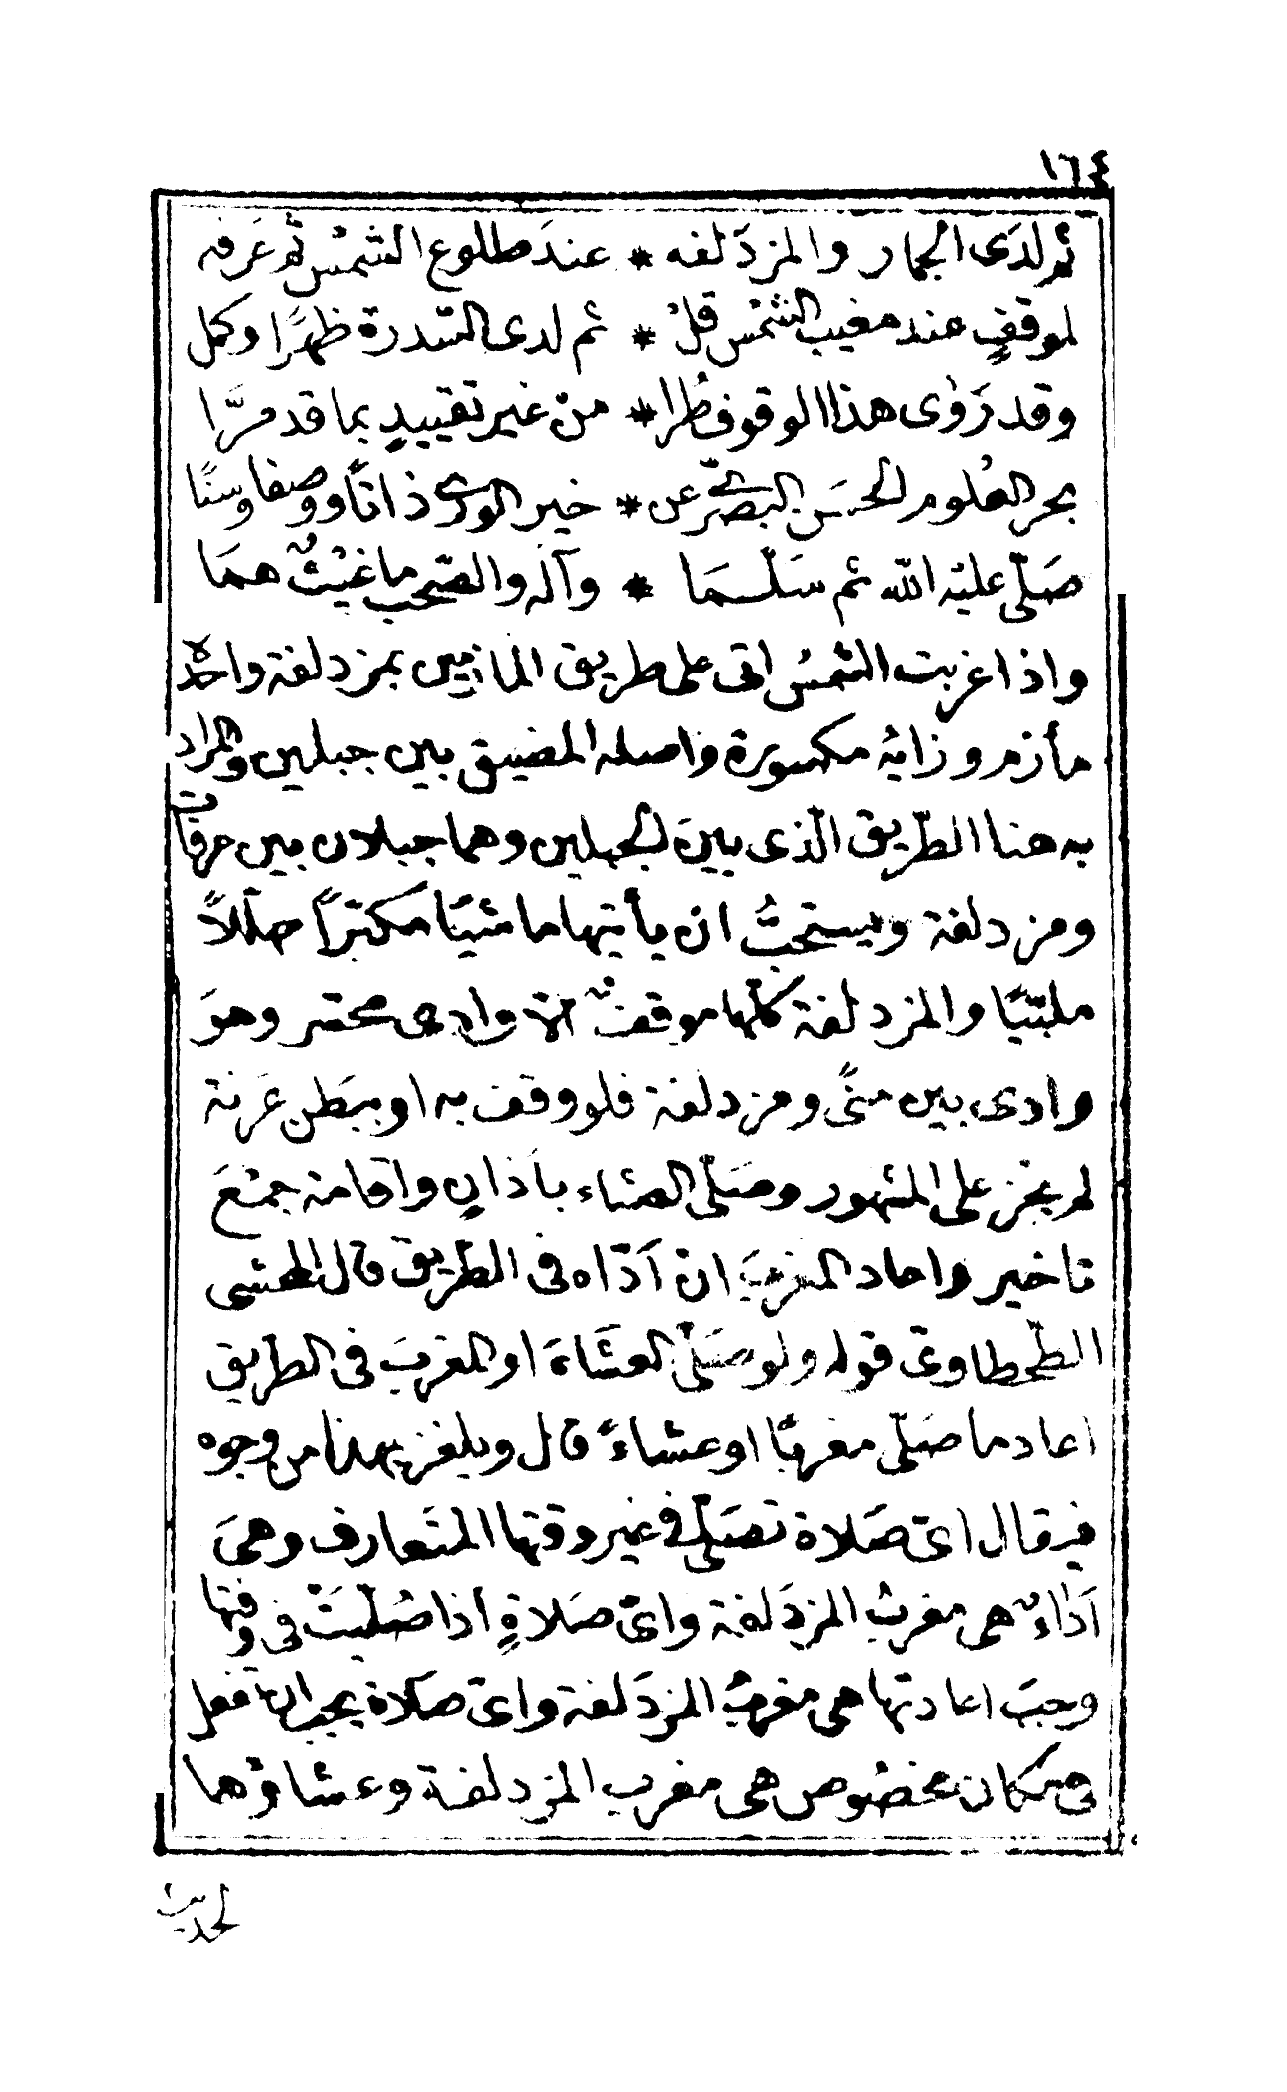 ١٦٤
ثم لدَى الجمار والمزدَلفه * عندَ طلوع الشمْس ثم عَرفه
لموقفٍ عند مغيب الشمْس قلْ * ثم لدى السّدرة ظهرًا وكمل
وقد رَوٰى هذا الوقوف طُرا * منْ غير تقييدٍ بما قد مرَّا
بحر العُلوم الحسَن البصَريّ عن * خير الورى ذاتًا ووصفا وسنًا
صَلّى عليْه اللّٰه ثم سَلّسمَا * وآله والصّحب ما غيْثٌ همَا
واذا غربت الشمسُ اتى على طريق المأزمين بمزدلفة واحدُه
مأزم وزايهُ مكسورة واصله المضيق بين جبلين والمراد
به هنا الطّريق الّذى بينَ الجبلين وهما جبلان بين عرفات
ومزدلفة ويستحبُّ ان يأتيها ماشيًا مكبّراً مهلّلاً
ملبّيًا والمزدلفة كلّها موقفٌ الّا وادى محسّر وهوَ
وادى بين منًى ومزدلفة فلو وقف به او ببَطن عَرنة
لم يجز على المشهور وصَلّى العشاء بأذانٍ واقامة جمْعَ
تاخير واعاد المغربَ انْ أدّاه فى الطّريق قال المحشى
الطّحطاوىّ قوله ولو صَلّى العشَاءَ او المغربَ فى الطريق
اعاد ما صَلّى مغربًا او عشاءً قال ويلغز بهذا من وجوه
فيقال اىّ صَلاة تصَلّى فى غير وقتها المتَعارف وهىَ
اَداءٌ هى مغربُ المزدَلفة واىّ صَلاةٍ اذا صُلّيتْ فى وقتها
وجبَ اعادتها هى مغربُ المزدَلفة واىّ صَلاة يجب انها تفعل
فى مكان مخصُوص هى مغرب المزدلفة وعشاؤها
الحديث